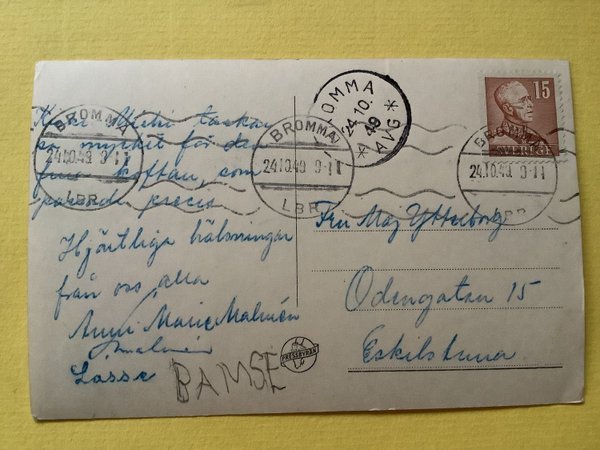 Michi tackar
så mycket för den
fina koftan, som
passade precis
Hjärtliga hälsningar
från oss alla
Anna Marie Malmén
Lasse
BAMSE
BROMMA
24.10.49 9-11
LBR
BROMMA
24.10.49 9-11
LBR
BROMMA
24.10.
49
* AVG *
BROMMA
24.10.49 9-11
LBR
15
SVERIGE
Fru Maj Ytterborg
Odengatan 15
Eskilstuna
PRESSBYRÅN